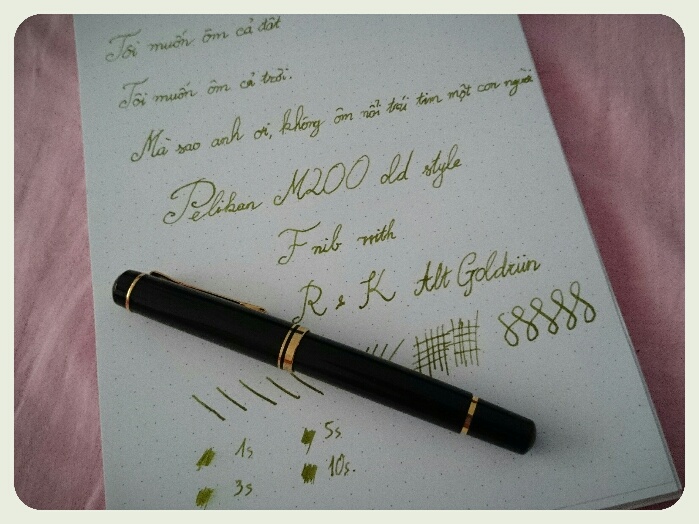 Tôi muốn ôm cả đất
Tôi muốn ôm cả trời.
Mà sao anh ơi, không ôm nổi trái tim một con người
Pelikan M200 old style
F nib with
R & K Alt Goldrün
1s 5s
3s 10s.